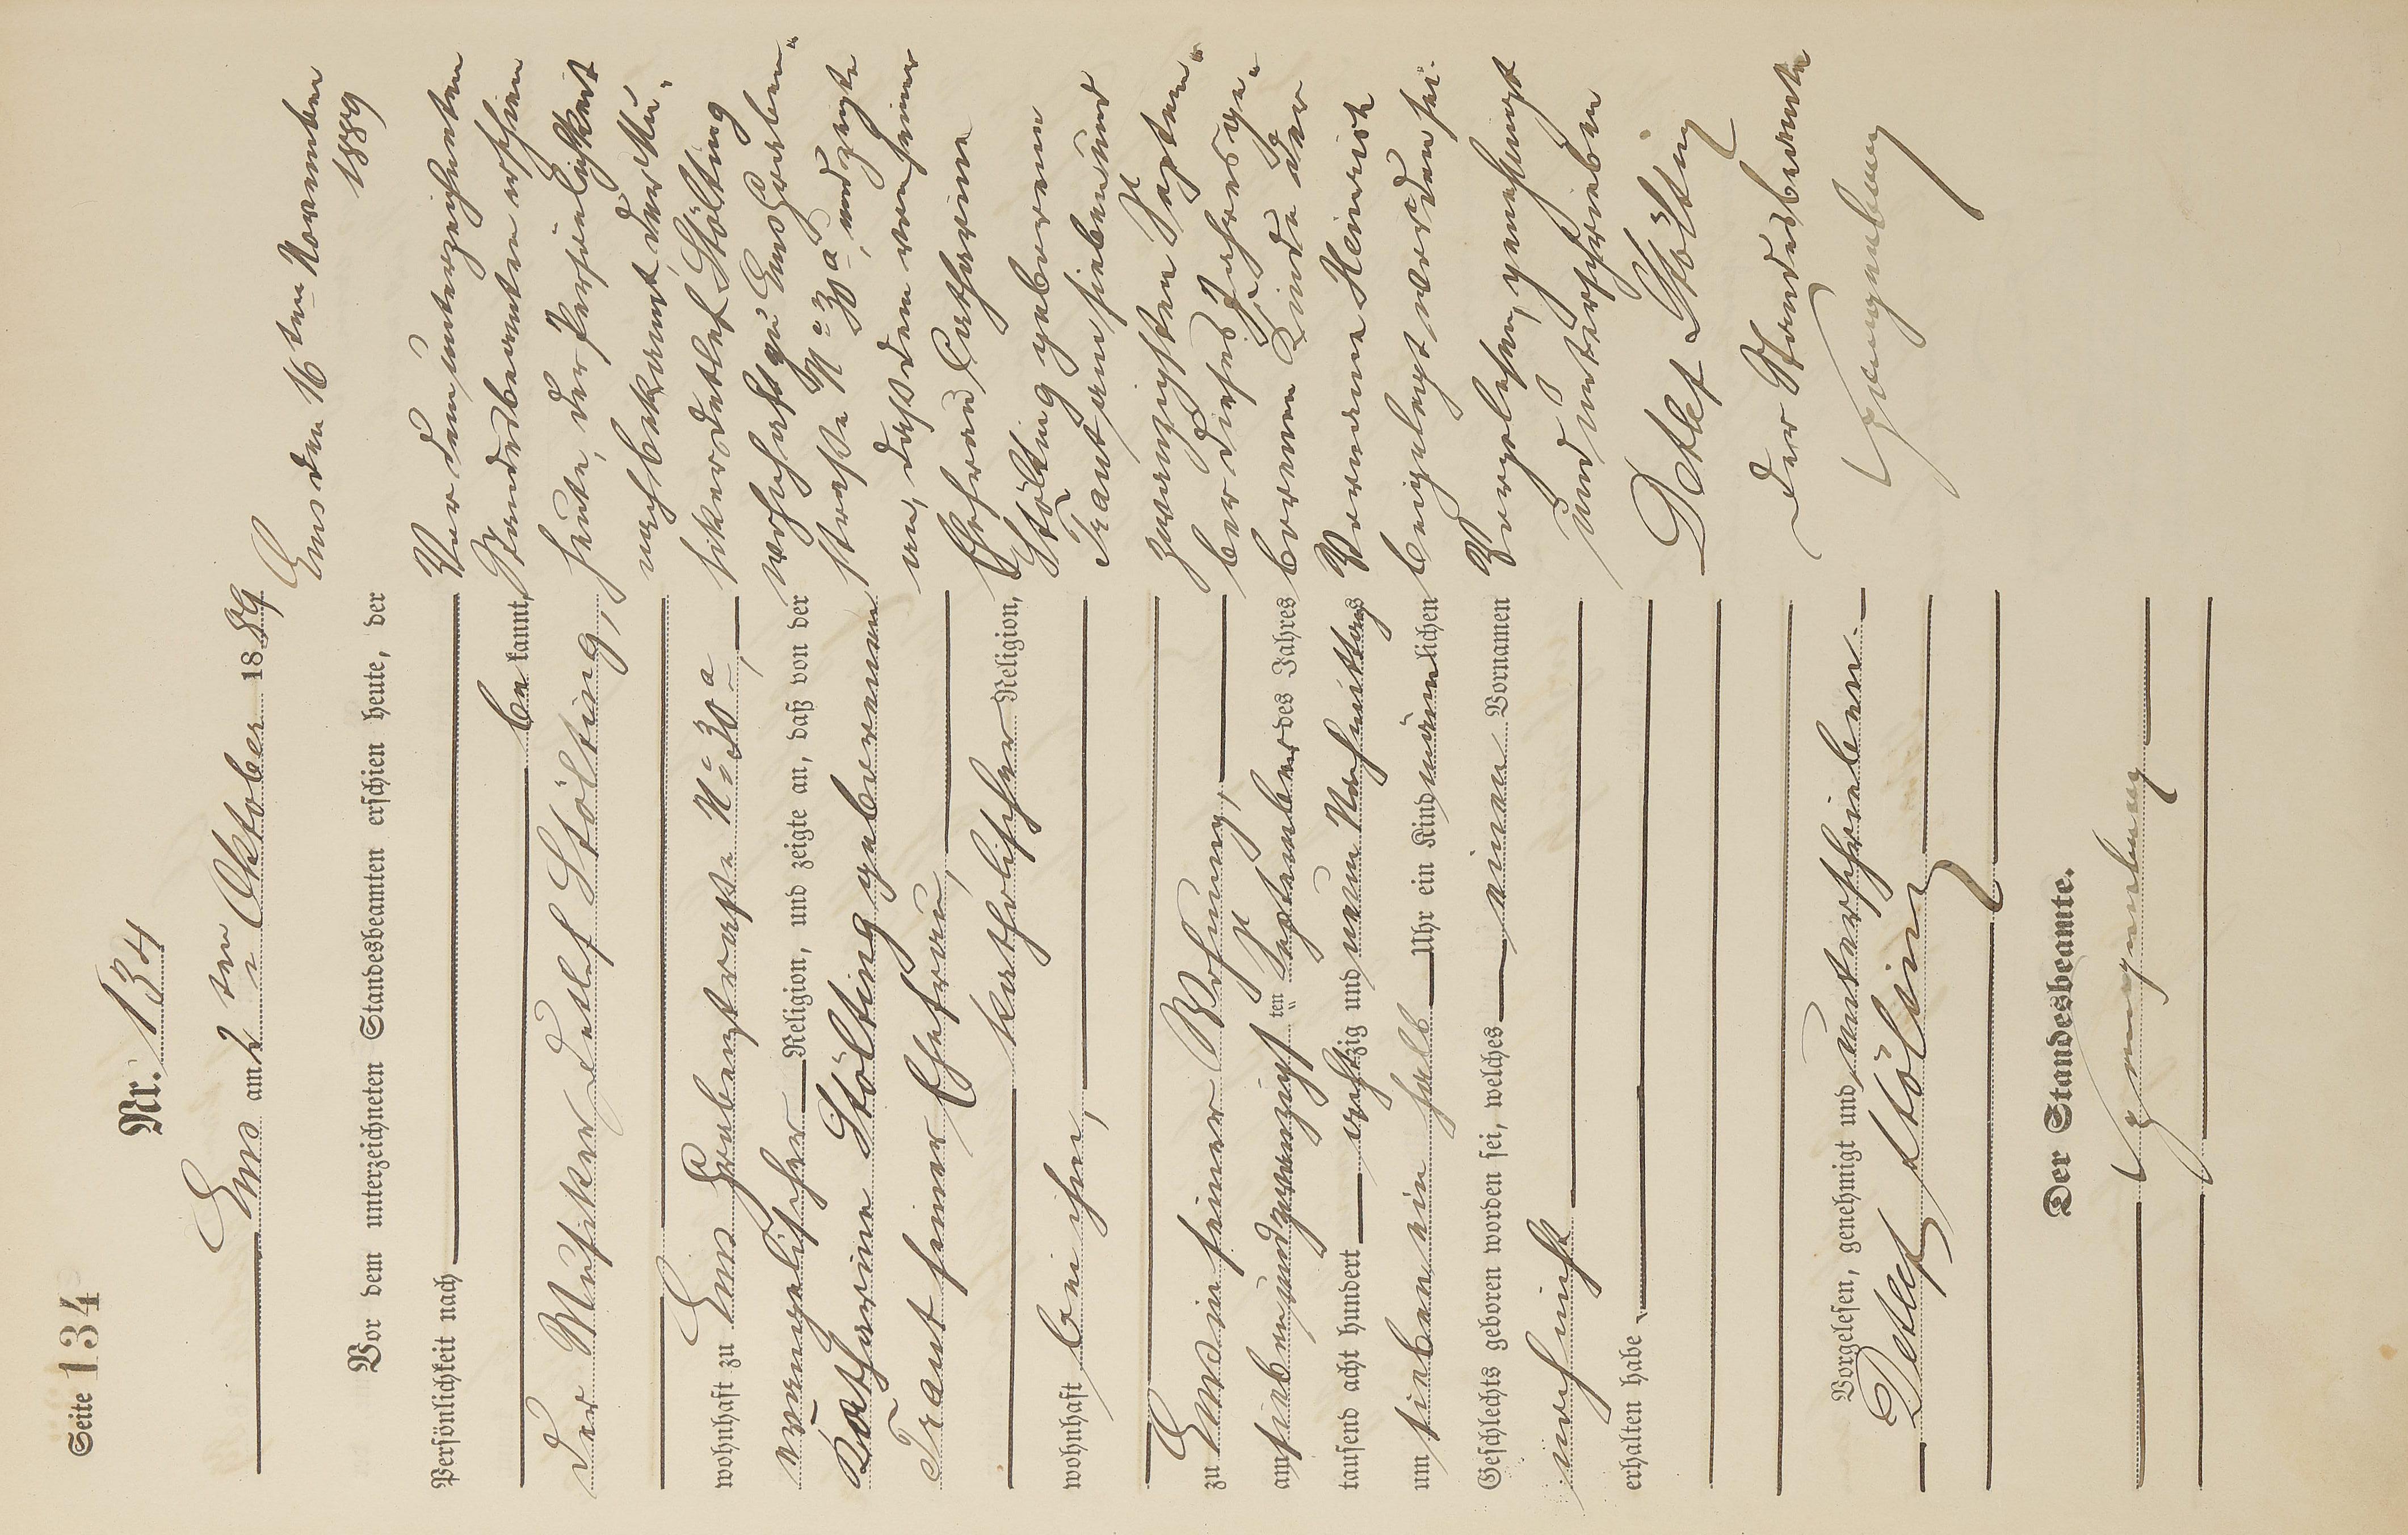 Seite 134
Nr. 134
Ems am 2ten Oktober 1889
Vor dem unterzeichneten Standesbeamten erschien heute, der
Persönlichkeit nach
bekannt,
der Musiker Detlef Stölting,
wohnhaft zu Ems Grabenstraße No 30a,
evangelischer Religion, und zeigte an, daß von der
Catharine Stölting geborenen
Traut seiner Ehefrau,
katholischer Religion,
wohnhaft bei ihm,
zu Ems in seiner Wohnung,
am siebenundzwanzigsten September des Jahres
tausend acht hundert achtzig und neun Nachmittags
um sieben ein halb Uhr ein Kind männlichen
Geschlechts geboren worden sei, welches einen Vornamen
noch nicht
erhalten habe
Vorgelesen, genehmigt und unterschrieben.
Detlef Stölting
Der Standesbeamte.
Ems den 16ten November
1889
Vor dem unterzeichneten
Standesbeamten erschien
heute, der Persönlichkeit
nach bekannt, der Mu-
siker Detlef Stölting
wohnhaft zu Ems Graben-
straße No 30a, und zeigte
an, daß dem von seiner
Ehefrau Catharine
Stölting geborenen
Traut am siebenund
zwanzigsten Septem-
ber dieses Jahres ge-
borenen Kinde der
Vorname Heinrich
beigelegt worden sei.
Vorgelesen, genehmigt
und unterschrieben
Detlef Stölting
Der Standesbeamte